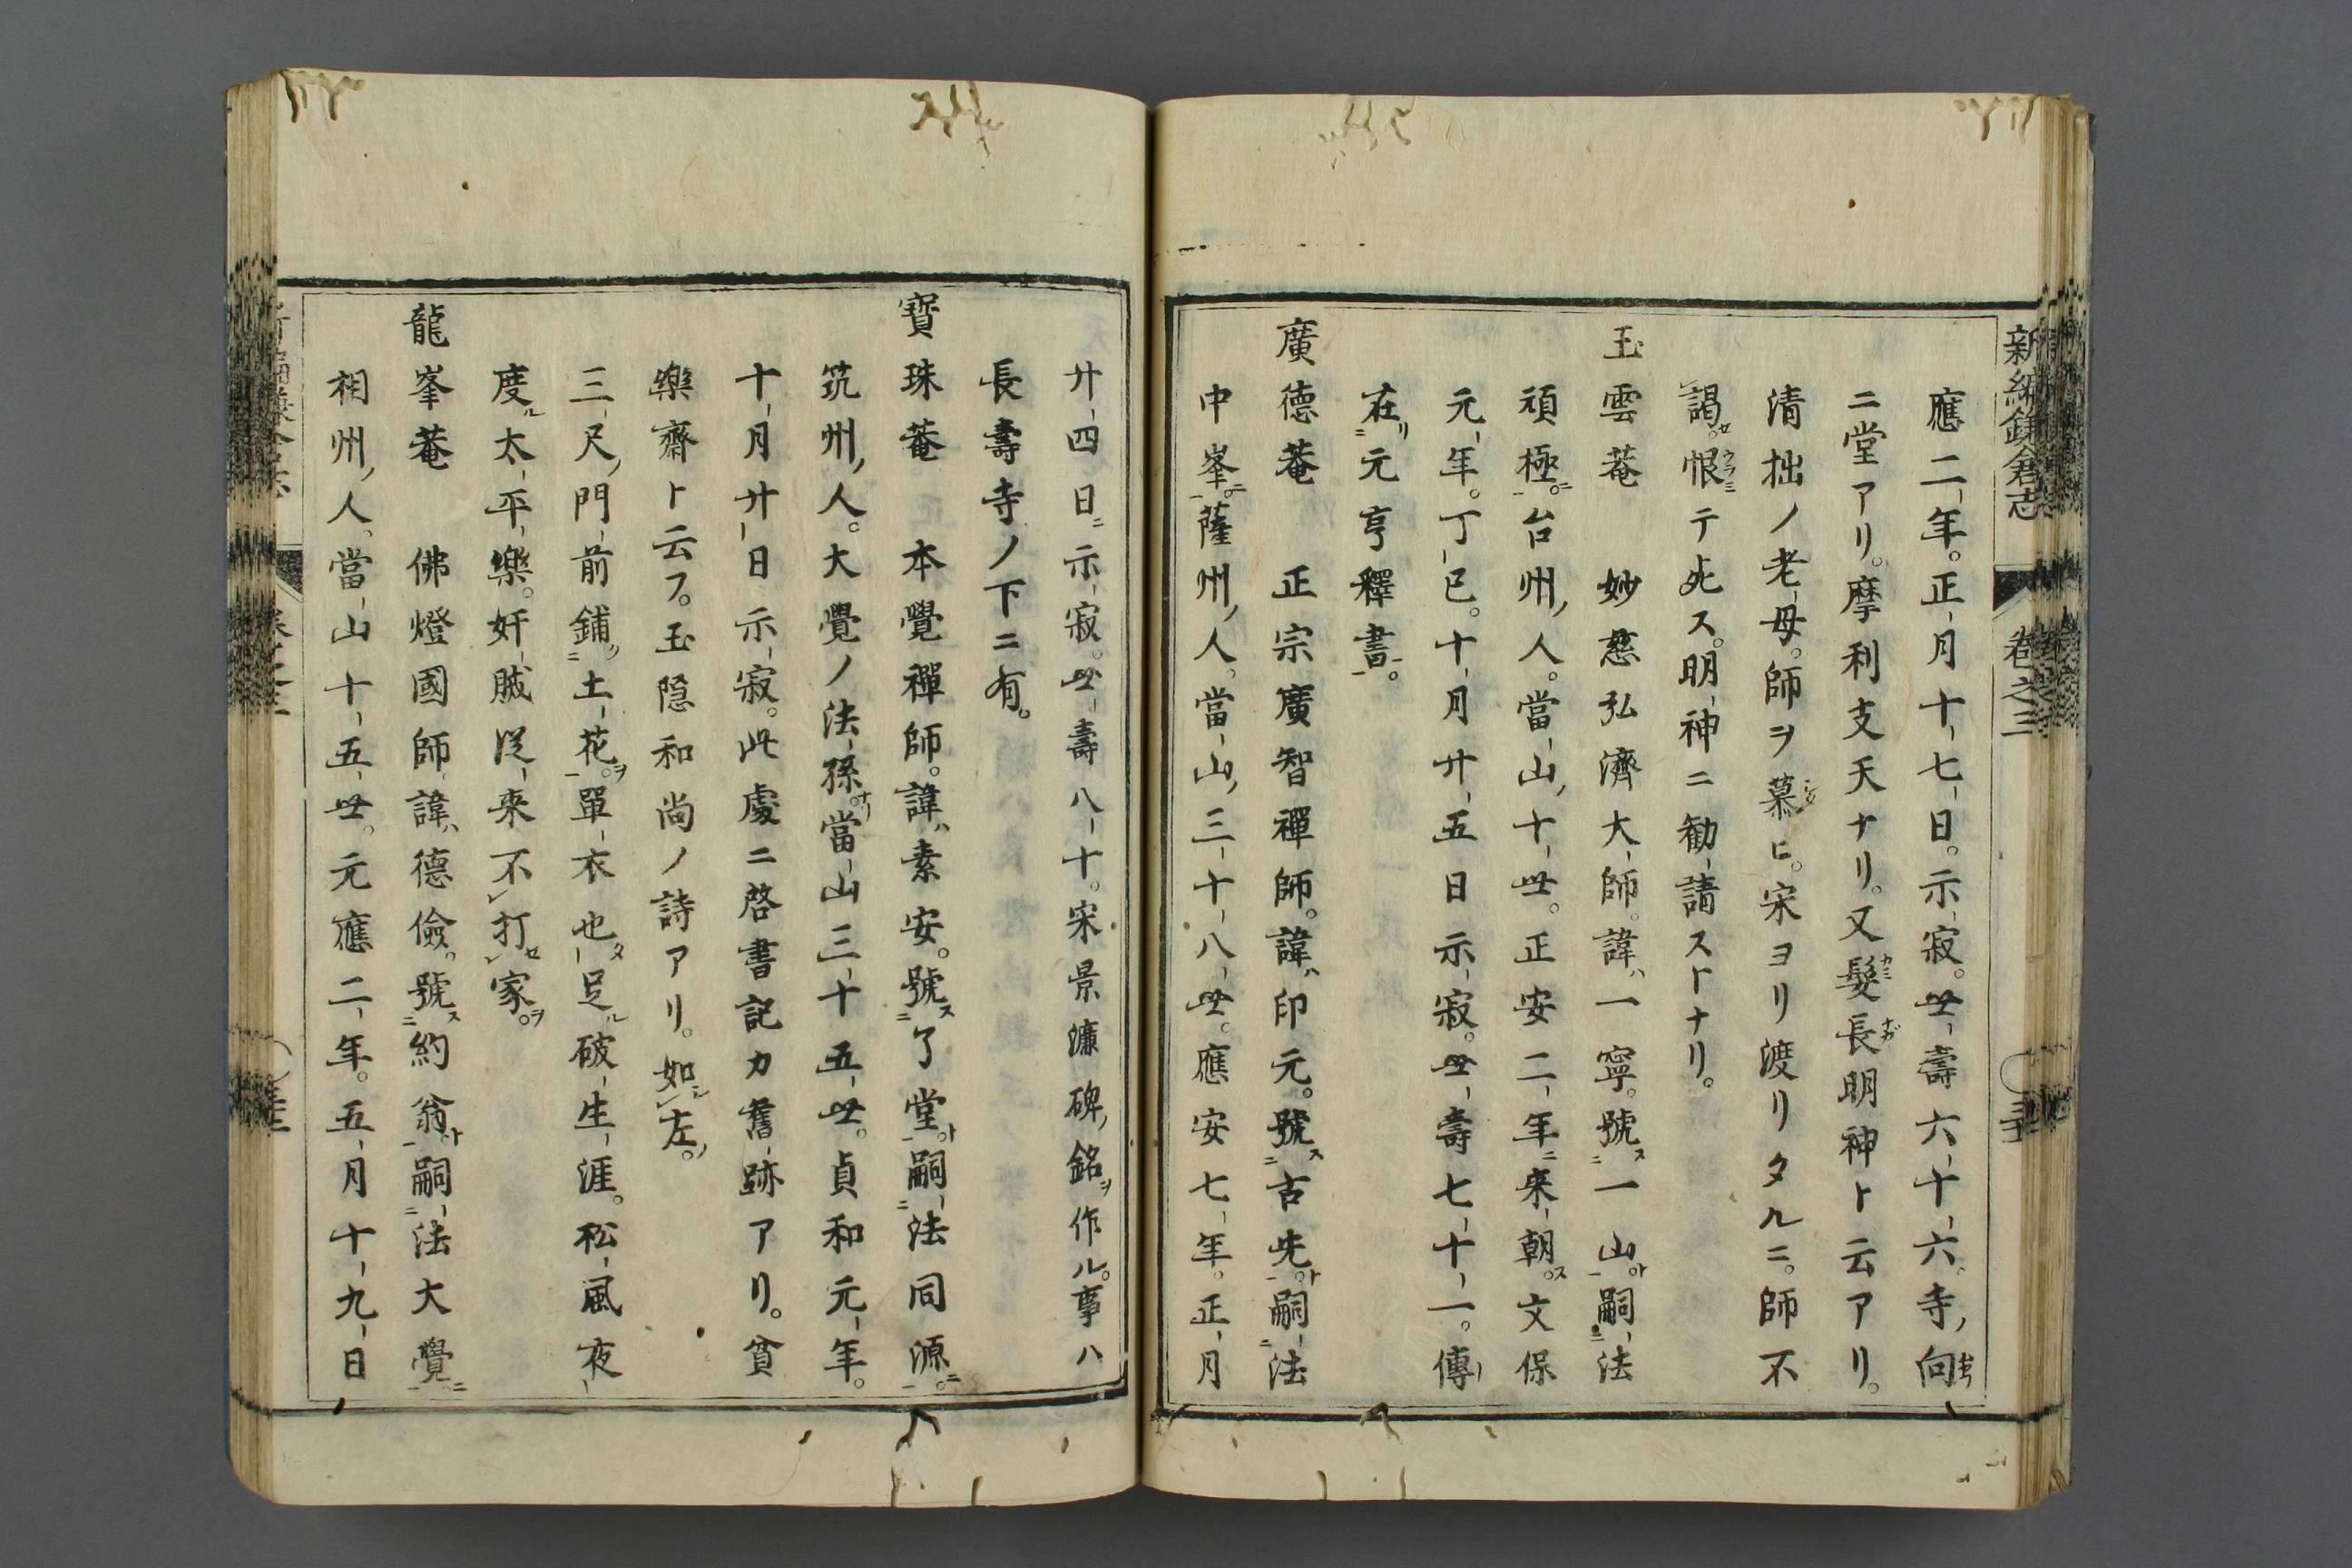 新編鎌倉志
卷之三
應二年。正月十七日。示寂。世壽六十六。寺ノ向
ニ堂アリ。摩利支天ナリ。又髮長明神ト云アリ。
清拙ノ老母。師ヲ慕ヒ。宋ヨリ渡リタルニ。師不
謁。恨テ死ス。明神ニ勧請ストナリ。
玉雲菴　妙慈弘濟大師。諱ハ一寧。號ス一山ト。嗣法
頑極ニ。台州ノ人。當山ノ十世。正安二年ニ來朝ス。文保
元年。丁巳。十月廿五日示寂。世壽七十一。傳
在リ元亨釋書ニ。
廣德菴　正宗廣智禪師。諱ハ印元。號ス古先ト。嗣法
中峯ニ。薩州ノ人。當山ノ三十八世。應安七年。正月
廿四日ニ示寂。世壽八十。宋景濂碑ノ銘ヲ作ル。事ハ
長壽寺ノ下ニ有。
寶珠菴　本覺禪師。諱ハ素安。號ス了堂ト。嗣法同源ニ。
筑州ノ人。大覺ノ法孫ナリ。當山三十五世。貞和元年。
十月廿日示寂。此處ニ啓書記カ舊跡アリ。貧
樂齋ト云フ。玉隠和尚ノ詩アリ。如左。
三尺ノ門前鋪ク土花ヲ。單衣也タ足ル破生涯。松風夜
度ル太平樂。奸賊從來不打家ヲ。
龍峯菴　佛燈國師。諱ハ德儉。號ス約翁ト。嗣法大覺ニ。
相州ノ人。當山十五世。元應二年。五月十九日